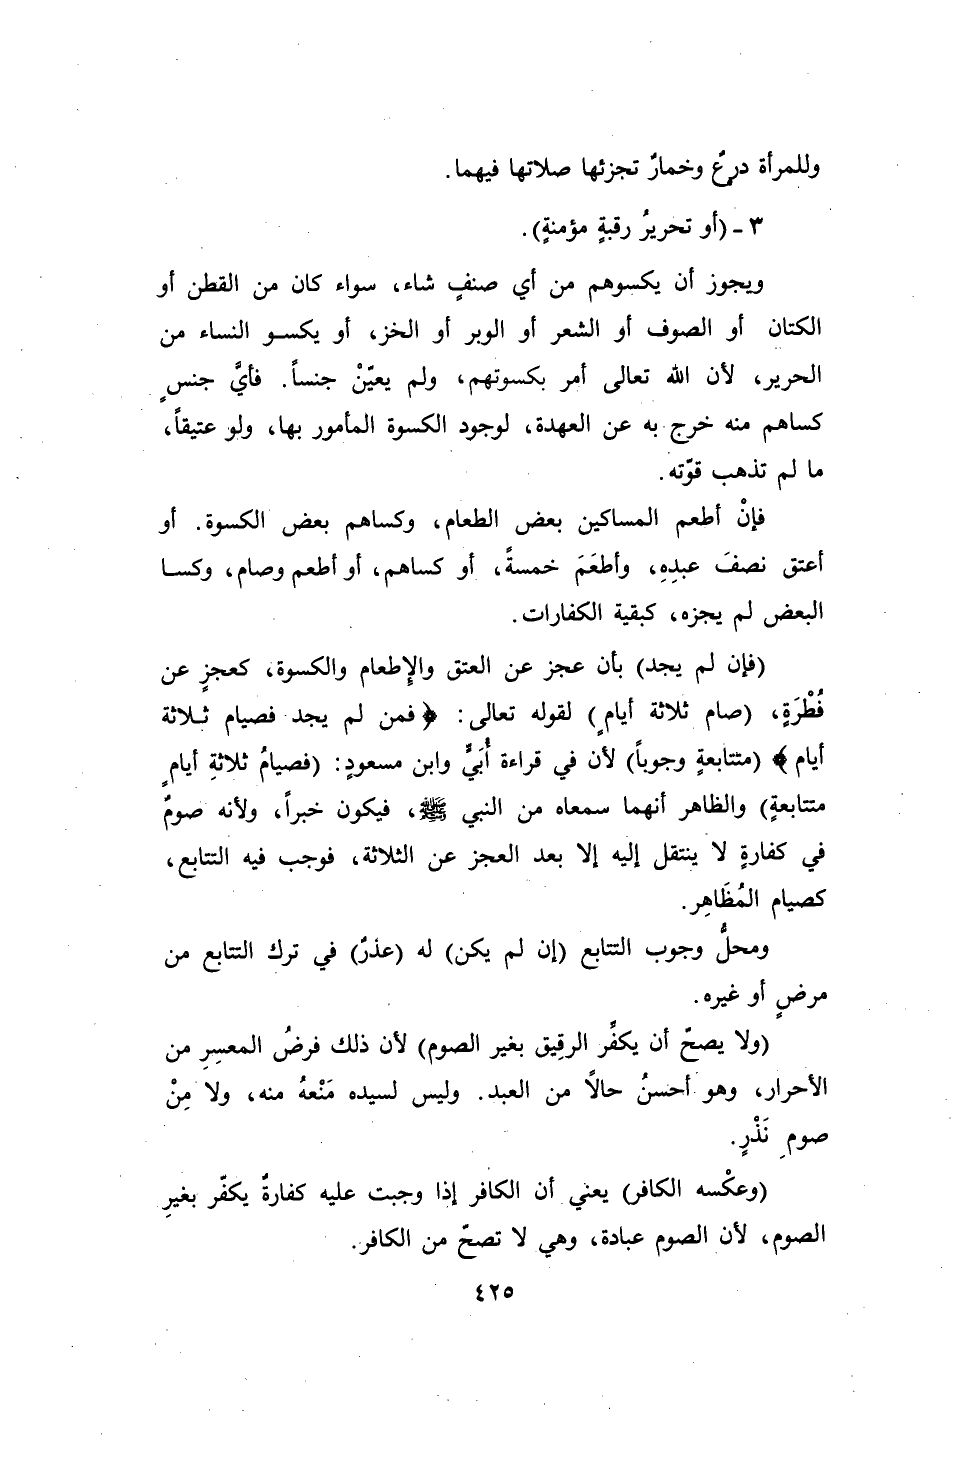 وللمرأة درعٌ وخمارٌ تجزئها صلاتها فيهما.
٣ - (أو تحريرُ رقبةٍ مؤمنةٍ).
ويجوز أن يكسوهم من أي صنفٍ شاء، سواء كان من القطن أو
الكتان أو الصوف أو الشعر أو الوبر أو الخز، أو يكسو النساء من
الحرير، لأن الله تعالى أمر بكسوتهم، ولم يعيّنْ جنساً. فأيَّ جنسٍ
كساهم منه خرج به عن العهدة، لوجود الكسوة المأمور بها، ولو عتيقاً،
ما لم تذهب قوّته.
فإنْ أطعم المساكين بعض الطعام، وكساهم بعض الكسوة. أو
أعتق نصفَ عبدِهِ، وأطعَمَ خمسةً، أو كساهم، أو أطعم وصام، وكسا
البعض لم يجزه، كبقية الكفارات.
(فإن لم يجد) بأن عجز عن العتق والإِطعام والكسوة، كعجزٍ عن
فُطْرَةٍ، (صام ثلاثة أيامٍ) لقوله تعالى: ﴿فمن لم يجد فصيام ثلاثة
أيام﴾ (متتابعةٍ وجوباً) لأن في قراءة أُبَيٍّ وابن مسعودٍ: (فصيامُ ثلاثةِ أيامٍ
متتابعةٍ) والظاهر أنهما سمعاه من النبي ﷺ، فيكون خبراً، ولأنه صومٌ
في كفارةٍ لا ينتقل إليه إلا بعد العجز عن الثلاثة، فوجب فيه التتابع،
كصيام المُظَاهِر.
ومحلُّ وجوب التتابع (إن لم يكن) له (عذرٌ) في ترك التتابع من
مرضٍ أو غيره.
(ولا يصحّ أن يكفِّر الرقيق بغير الصوم) لأن ذلك فرضُ المعسِرِ من
الأحرار، وهو أحسنُ حالاً من العبد. وليس لسيده مَنْعهُ منه، ولا مِنْ
صومِ نَذْرٍ.
(وعكْسه الكافر) يعني أن الكافر إذا وجبت عليه كفارةٌ يكفّر بغيرِ
الصوم، لأن الصوم عبادة، وهي لا تصحّ من الكافر.
٤٢٥